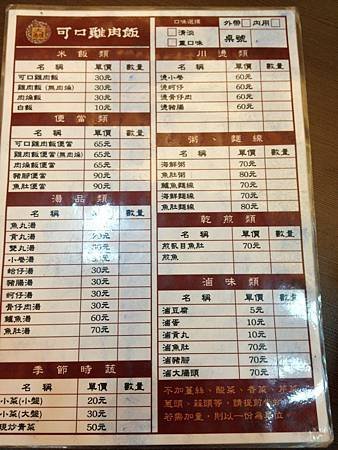 可口雞肉飯
口味選擇
清淡
重口味
外帶 內用
桌號
米飯類
名稱 單價 數量
可口雞肉飯 30元
雞肉飯(無肉燥) 30元
肉燥飯 30元
白飯 10元
便當類
名稱 單價 數量
可口雞肉飯便當 65元
雞肉飯便當(無肉燥) 65元
肉燥飯便當 65元
豬腳便當 90元
魚肚便當 90元
湯品類
名稱 單價 數量
魚丸湯 20元
貢丸湯 20元
雙丸湯 20元
小卷湯
蛤仔湯 30元
豬腸湯 30元
蚵仔湯 30元
骨仔肉湯 30元
鱸魚湯 60元
魚肚湯 70元
季節時蔬
名稱 單價 數量
小菜(小盤) 20元
小菜(大盤) 30元
現炒青菜 50元
川燙類
名稱 單價 數量
燙小卷 60元
燙蚵仔 60元
燙骨仔肉 60元
燙豬腸 60元
粥、麵線
名稱 單價 數量
海鮮粥 70元
魚肚粥 80元
鱸魚麵線 70元
海鮮麵線 70元
魚肚麵線 80元
乾煎類
名稱 單價 數量
煎虱目魚肚 70元
煎魚
滷味類
名稱 單價 數量
滷豆腐 5元
滷蛋 10元
滷貢丸 10元
滷魚肚 70元
滷豬腳 70元
滷大腸頭 70元
不加薑絲、酸菜、香菜、芹菜
蔥頭、蒜頭等,請提前
若需加量,則以一份為單位